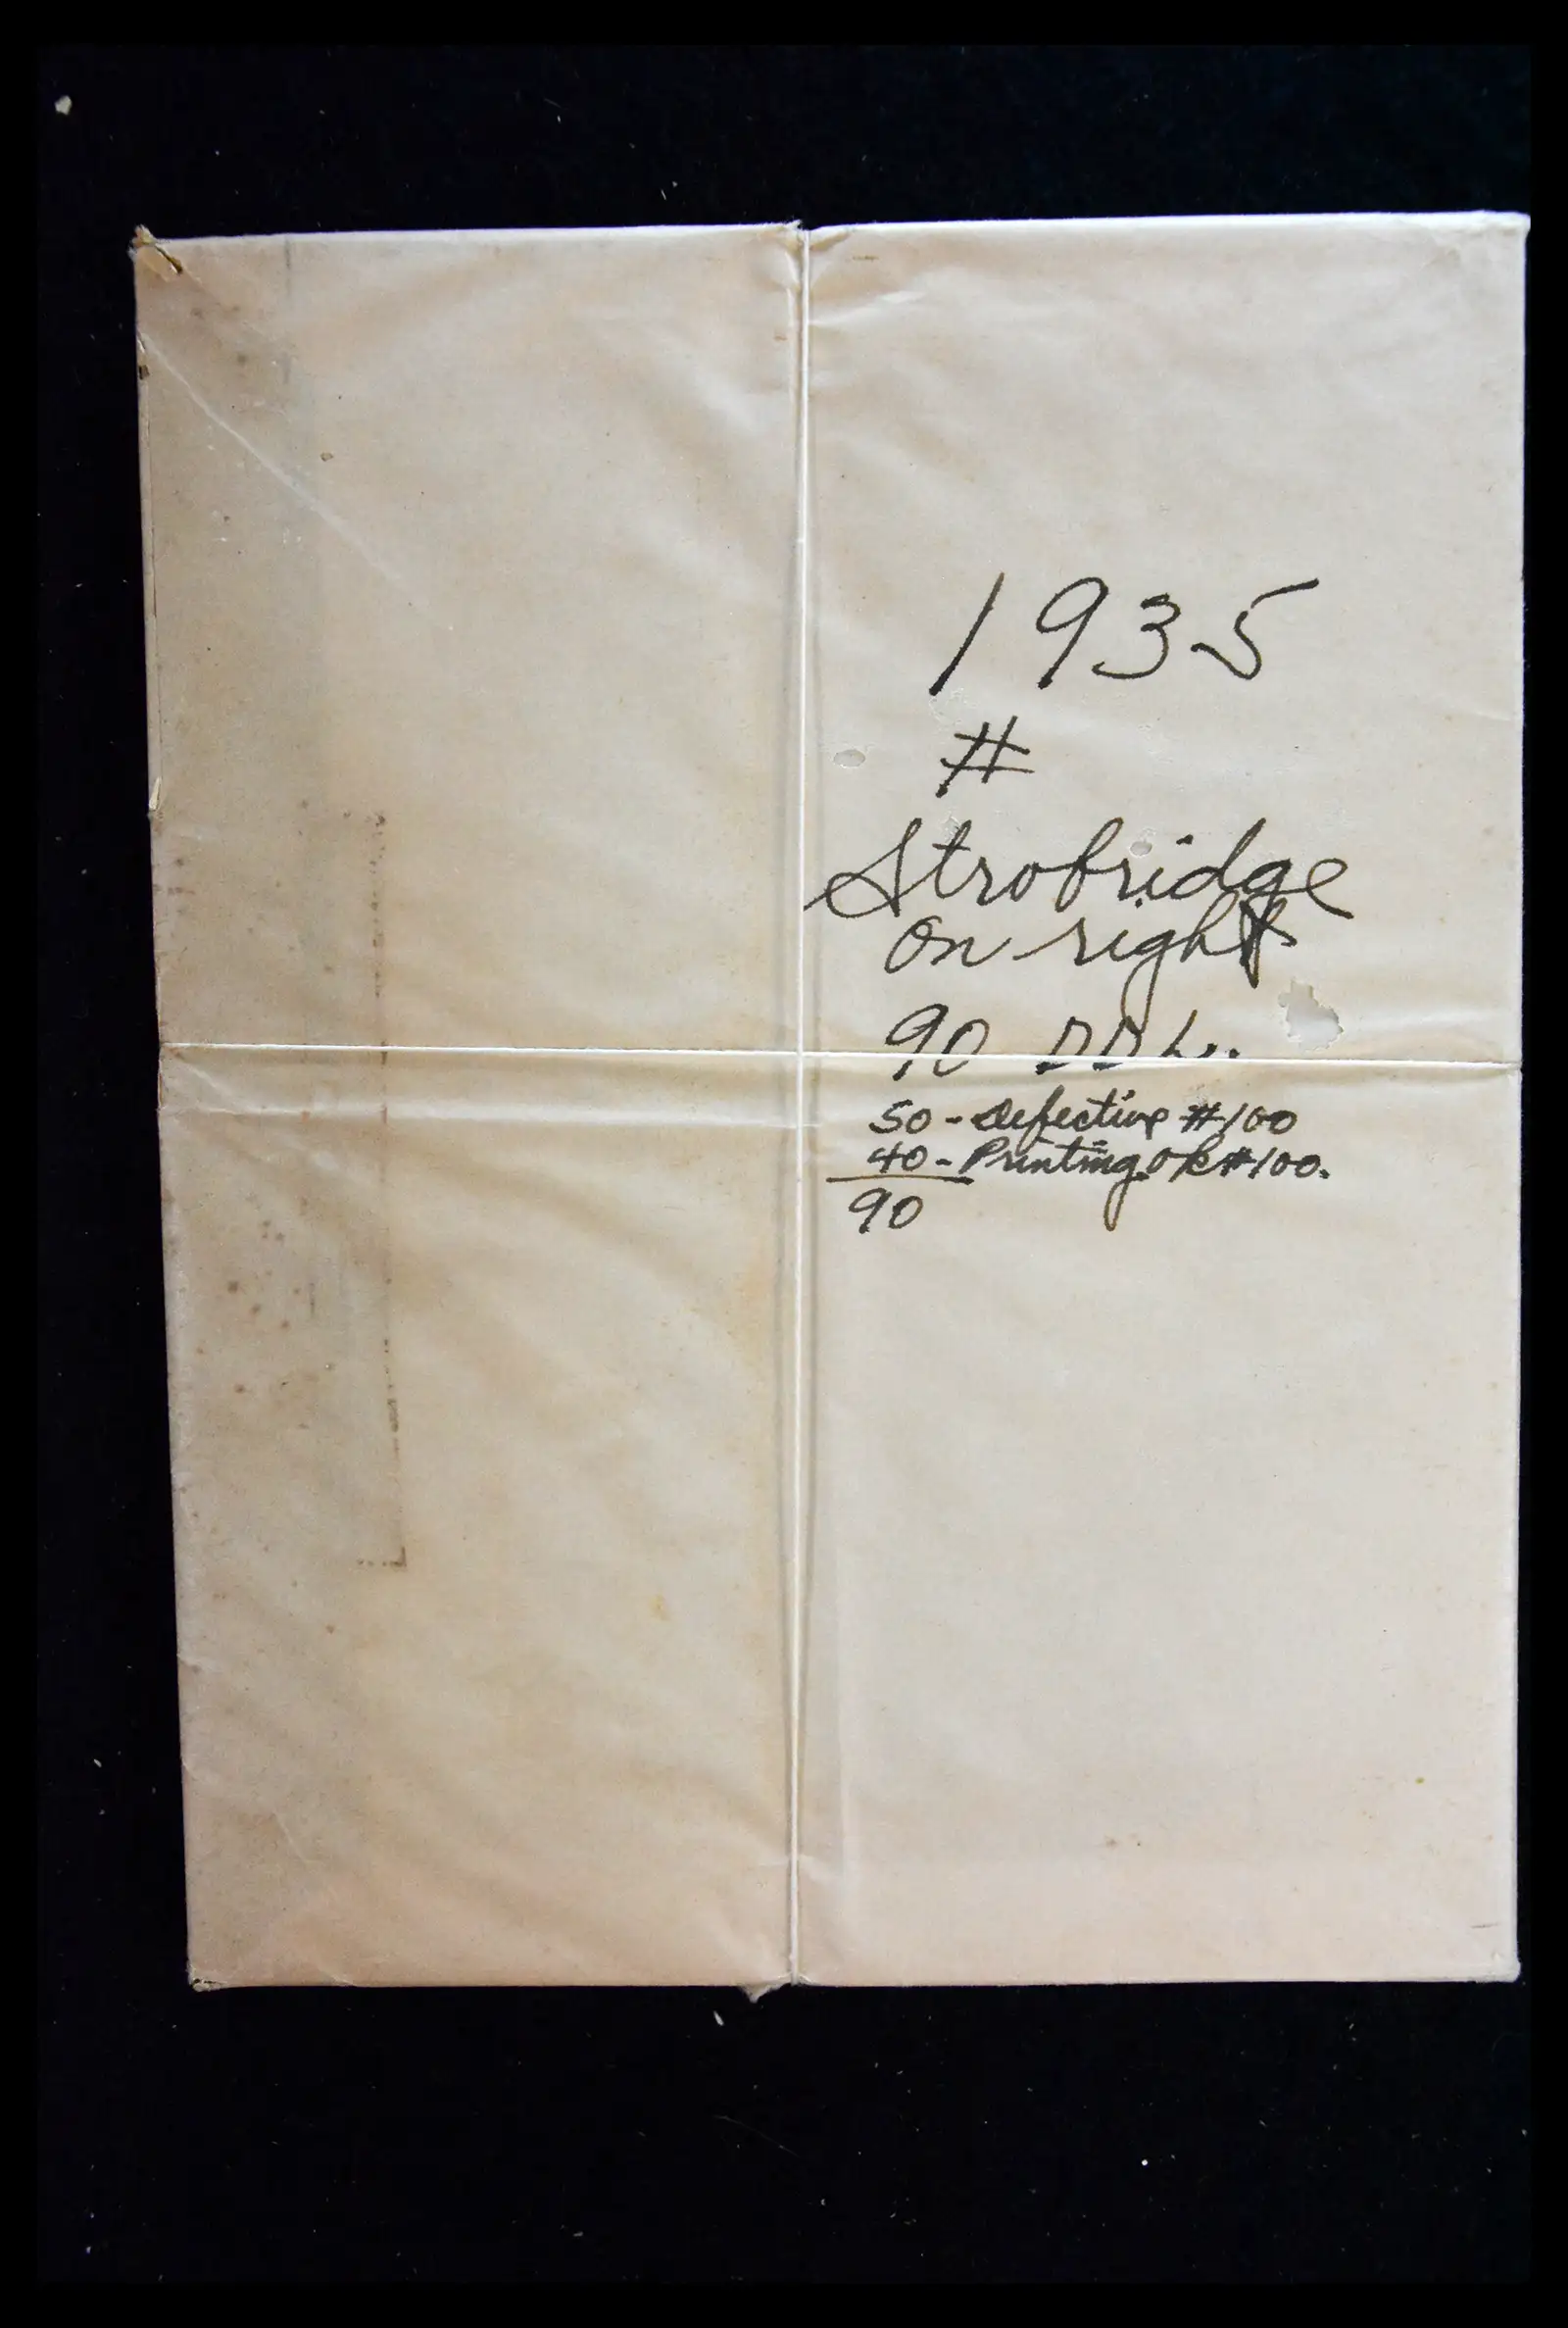 1935
#
Strobridge
on right
90
50 - defective #100
40 - Printing OK #100.
90